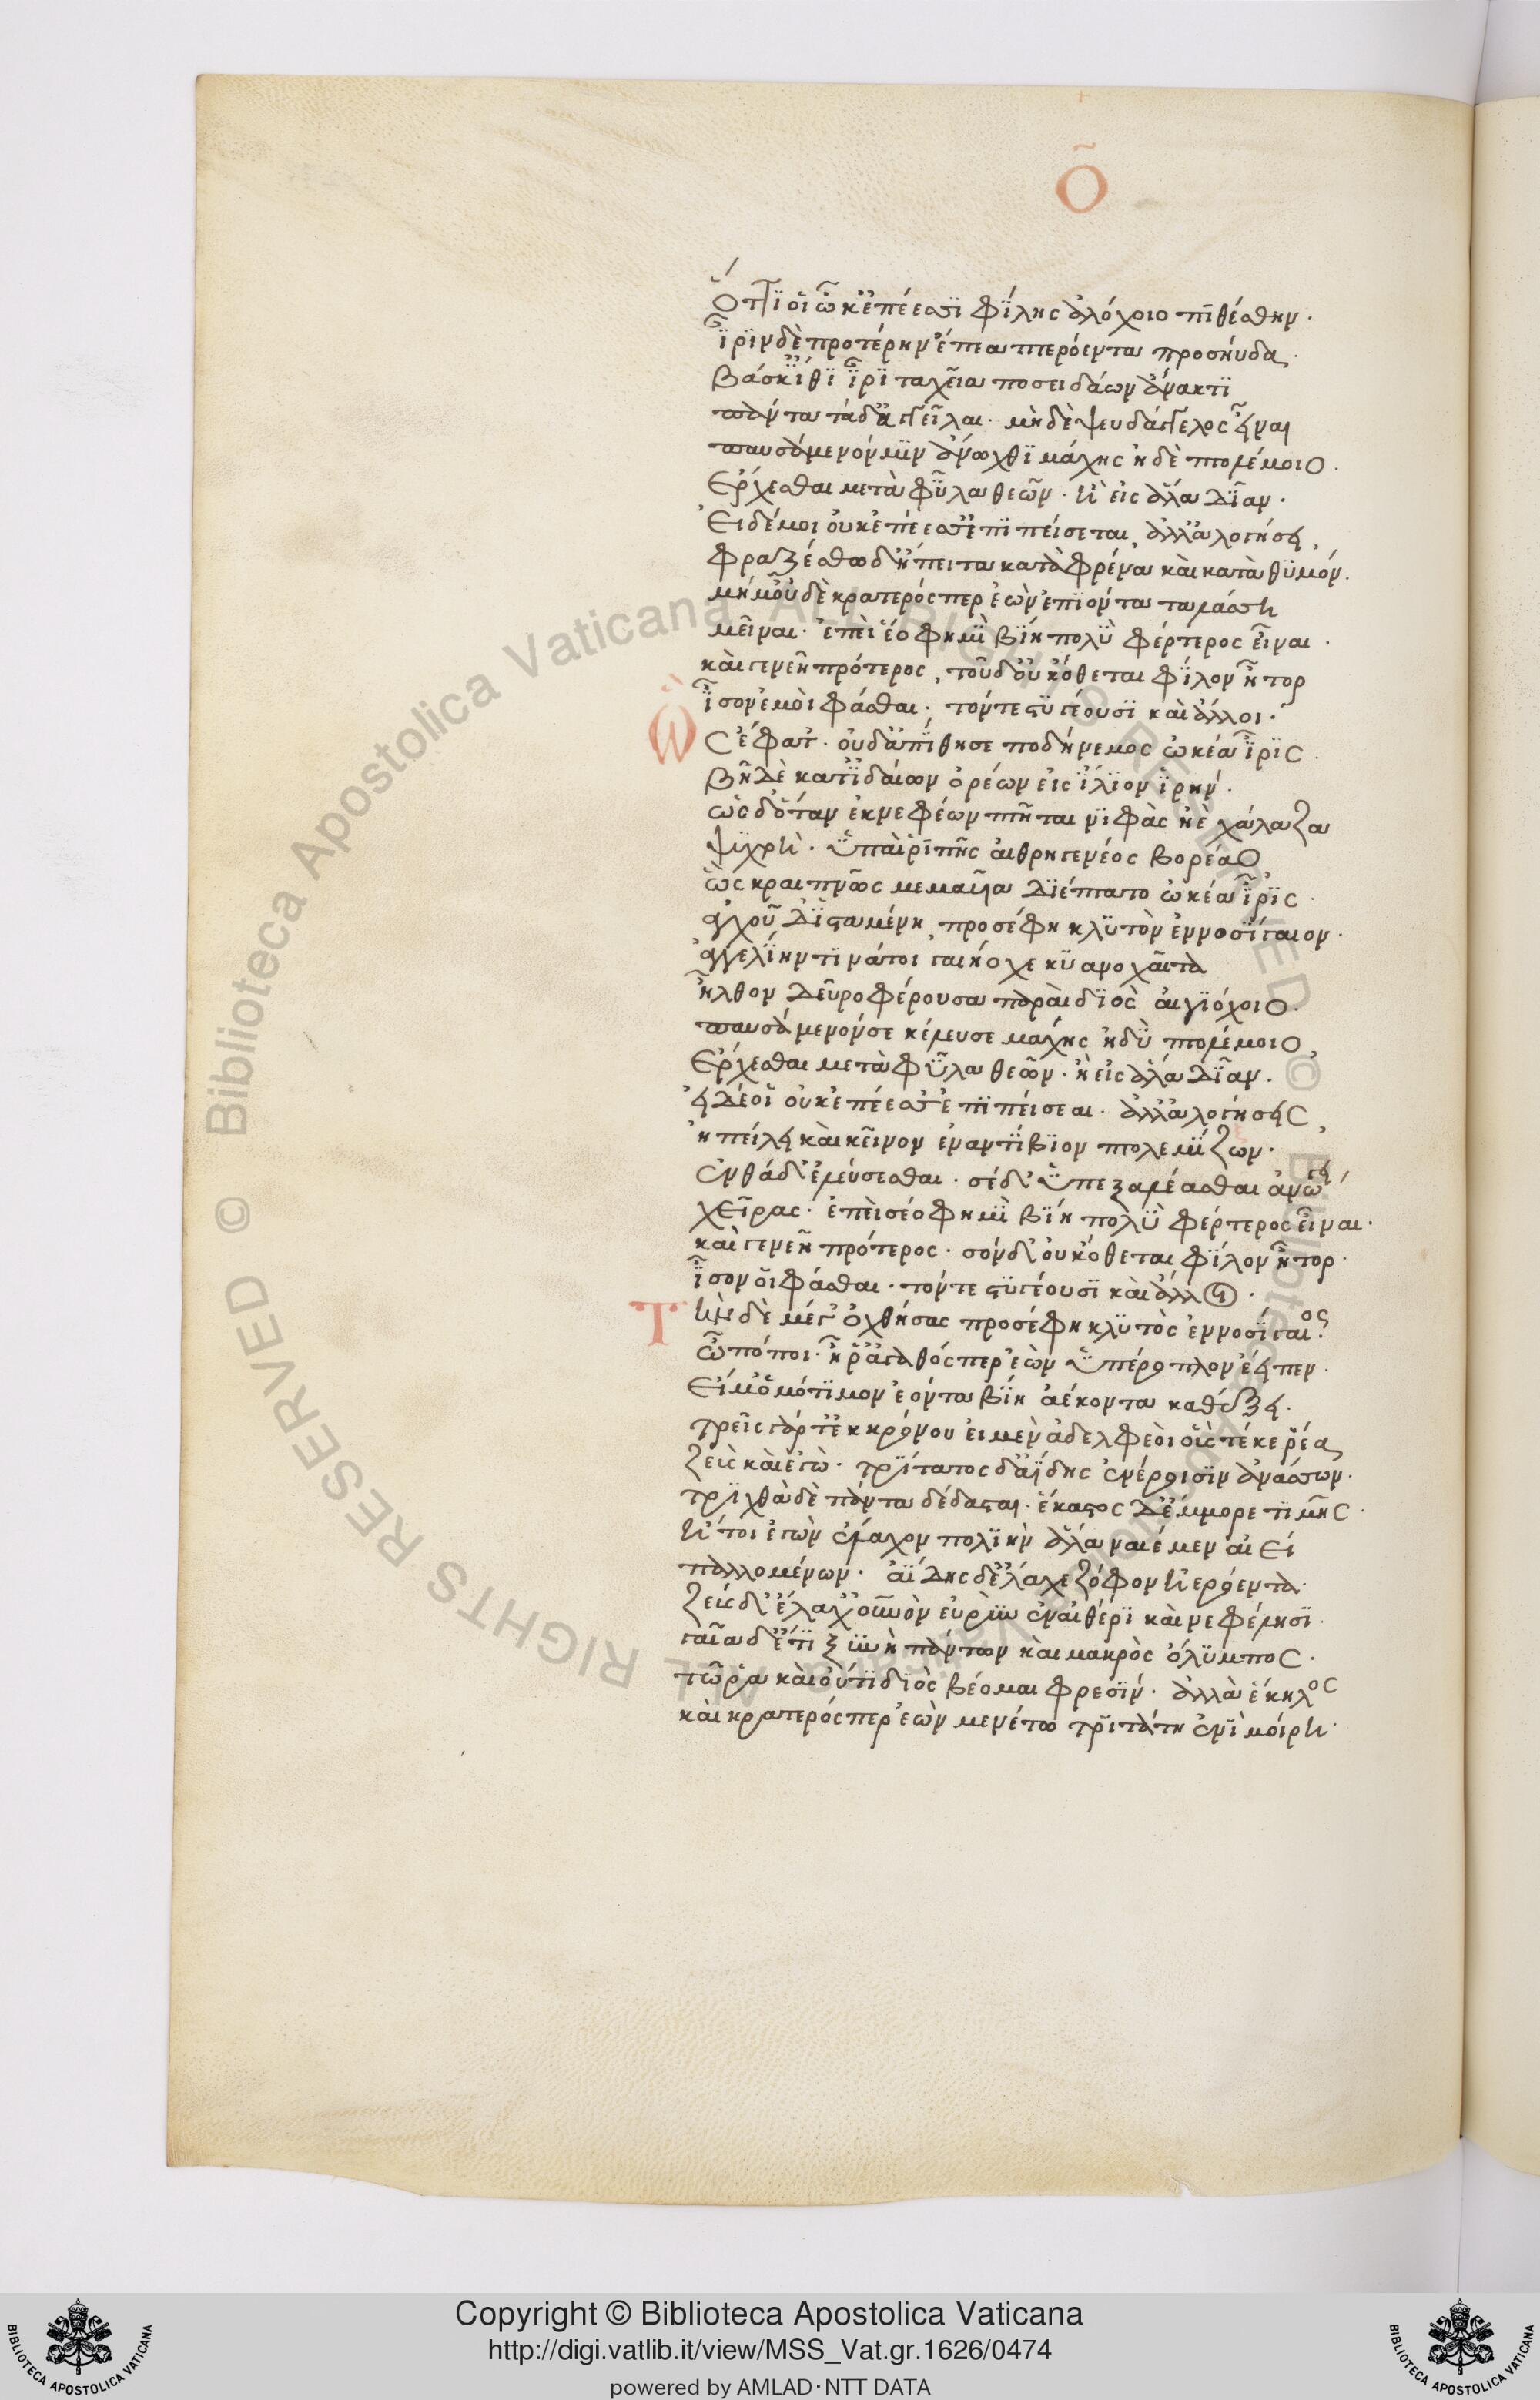 Ο
Ὅττί οἱ ὦκ' ἐπέεσσι φίλης ἀλόχοιο πιθέσθην.
Ἶριν δὲ προτέρην ἔπεα πτερόεντα προσηύδα.
Βάσκ' ἴθι Ἶρι ταχεῖα ποσειδάωνι ἄνακτι
πάντα τάδ' ἀγγεῖλαι. μὴ δὲ ψευδάγγελος εἶναι
παυσάμενόν μιν ἄνωχθι μάχης ἠδὲ πτολέμοιο.
Ἔρχεσθαι μετὰ φῦλα θεῶν. ἢ εἰς ἅλα δῖαν.
Εἰ δέ μοι οὐκ ἐπέεσσ' ἐπιπείσεται, ἀλλ' ἀλογήσει,
φραζέσθω δ' ἤπειτα κατὰ φρένα καὶ κατὰ θυμόν.
μή μ' οὐδὲ κρατερός περ ἐὼν ἐπιόντα ταλάσσῃ
μεῖναι. ἐπεὶ ἕο φημὶ βίῃ πολὺ φέρτερος εἶναι.
καὶ γενεῇ πρότερος, τοῦ δ' οὐκ ὄθεται φίλον ἦτορ
ἶσον ἐμοὶ φάσθαι. τόν τε στυγέουσι καὶ ἄλλοι.
Ὣς ἔφατ'. οὐδ' ἀπίθησε ποδήνεμος ὠκέα Ἶρις.
βῆ δὲ κατ' ἰδαίων ὀρέων εἰς ἴλιον ἱρήν.
ὡς δ' ὅταν ἐκ νεφέων πτῆται νιφὰς ἠὲ χάλαζα
ψυχρὴ. ὑπαὶ ῥιπῆς αἰθρηγενέος βορέαο
ὣς κραιπνῶς μεμαυῖα διέπτατο ὠκέα Ἶρις.
ἀγχοῦ δ' ἱσταμένη προσέφη κλυτὸν ἐννοσίγαιον.
ἀγγελίην τινά τοι γαιήοχε κυανοχαῖτα
ἦλθον δεῦρο φέρουσα παραὶ διὸς αἰγιόχοιο.
παυσάμενόν σε κέλευσε μάχης ἠδὲ πτολέμοιο
Ἔρχεσθαι μετὰ φῦλα θεῶν. ἢ εἰς ἅλα δῖαν.
εἰ δέ οἱ οὐκ ἐπέεσσ' ἐπιπείσεαι. ἀλλ' ἀλογήσεις,
ἠπείλει καὶ κεῖνον ἐναντίβιον πτολεμίζων.
ἐνθάδ' ἐλεύσεσθαι. σὲ δ' ὑπεξαλέασθαι ἀνώγει
χεῖρας. ἐπεὶ σέο φημὶ βίῃ πολὺ φέρτερος εἶναι.
καὶ γενεῇ πρότερος. σὸν δ' οὐκ ὄθεται φίλον ἦτορ.
ἶσον οἱ φάσθαι. τόν τε στυγέουσι καὶ ἄλλοι.
Τὴν δὲ μέγ' ὀχθήσας προσέφη κλυτὸς ἐννοσίγαιος.
ὢ πόποι. ἦ ῥ' ἀγαθός περ ἐὼν ὑπέροπλον ἔειπεν.
Εἴ μ' ὁμότιμον ἐόντα βίῃ ἀέκοντα καθέξει.
τρεῖς γάρ τ' ἐκ κρόνου εἰμὲν ἀδελφεοὶ οἓς τέκε ῥέα
ζεὺς καὶ ἐγὼ. τρίτατος δ' ἀΐδης ἐνέροισιν ἀνάσσων.
τριχθὰ δὲ πάντα δέδασται. ἕκαστος δ' ἔμμορε τιμῆς.
ἤτοι ἐγὼν ἔλαχον πολιὴν ἅλα ναιέμεν αἰεί
παλλομένων. ἀΐδης δ' ἔλαχε ζόφον ἠερόεντα.
ζεὺς δ' ἔλαχ' οὐρανὸν εὐρὺν ἐν αἰθέρι καὶ νεφέλῃσι.
γαῖα δ' ἔτι ξυνὴ πάντων καὶ μακρὸς ὄλυμπος.
τῶ ῥα καὶ οὔτι διὸς βέομαι φρεσίν. ἀλλὰ ἕκηλος
καὶ κρατερός περ ἐὼν μενέτω τριτάτῃ ἐνὶ μοίρῃ.
Copyright © Biblioteca Apostolica Vaticana
http://digi.vatlib.it/view/MSS_Vat.gr.1626/0474
powered by AMLAD·NTT DATA